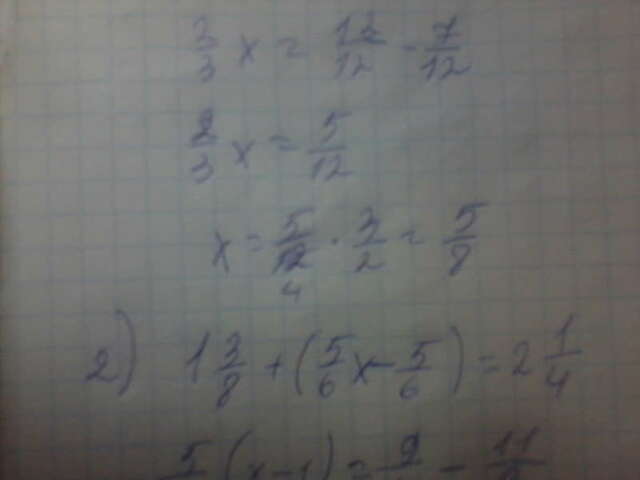 2/3 x = 12/12 - 7/12
2/3 x = 5/12
x = 5/12 · 3/2 = 5/8
4
2) 1 3/8 + (5/6 x - 5/6) = 2 1/4
(x-1) = -